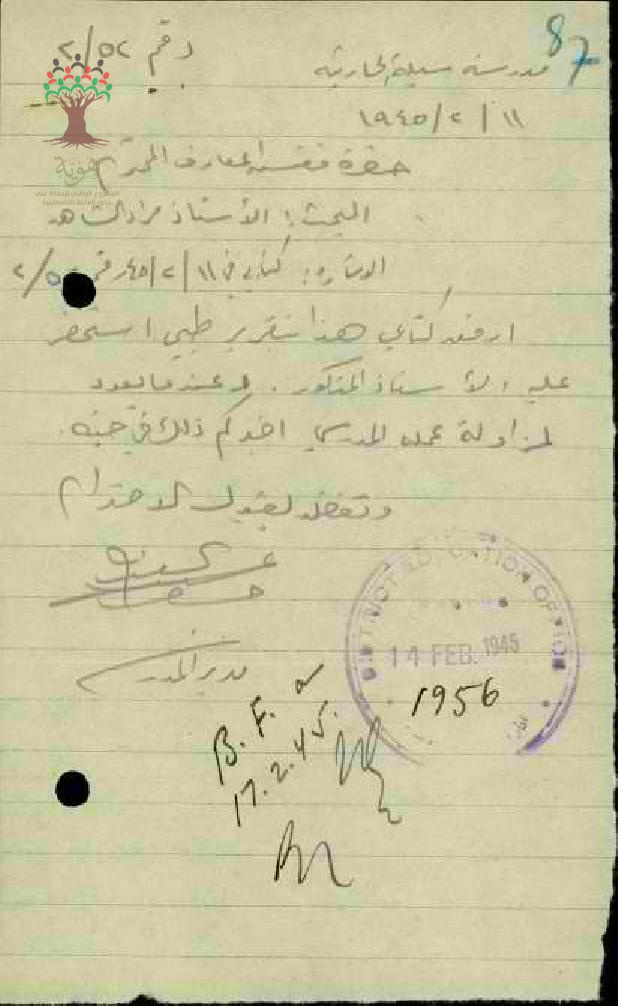 87
رقم ٥٢/٢
مدرسة سيلة الحارثية
١١/٢/١٩٤٥
هوية
حضرة مفتش المعارف المحترم
المبحث: الأستاذ مراد الشاهد
الاشارة: كتابي في ١١/٢/٤٥ رقم
ارفق كتابي هذا بتقرير طبي استحضر
عليه الأستاذ المذكور. وعندما يعود
لمزاولة عمله المدرسي اخبركم ذلك في حينه.
وتفضلوا بقبول الاحترام
مدير المدرسة
DISTRICT EDUCATION OFFICE
14 FEB. 1945
1956
B. F. a
17.2.45.